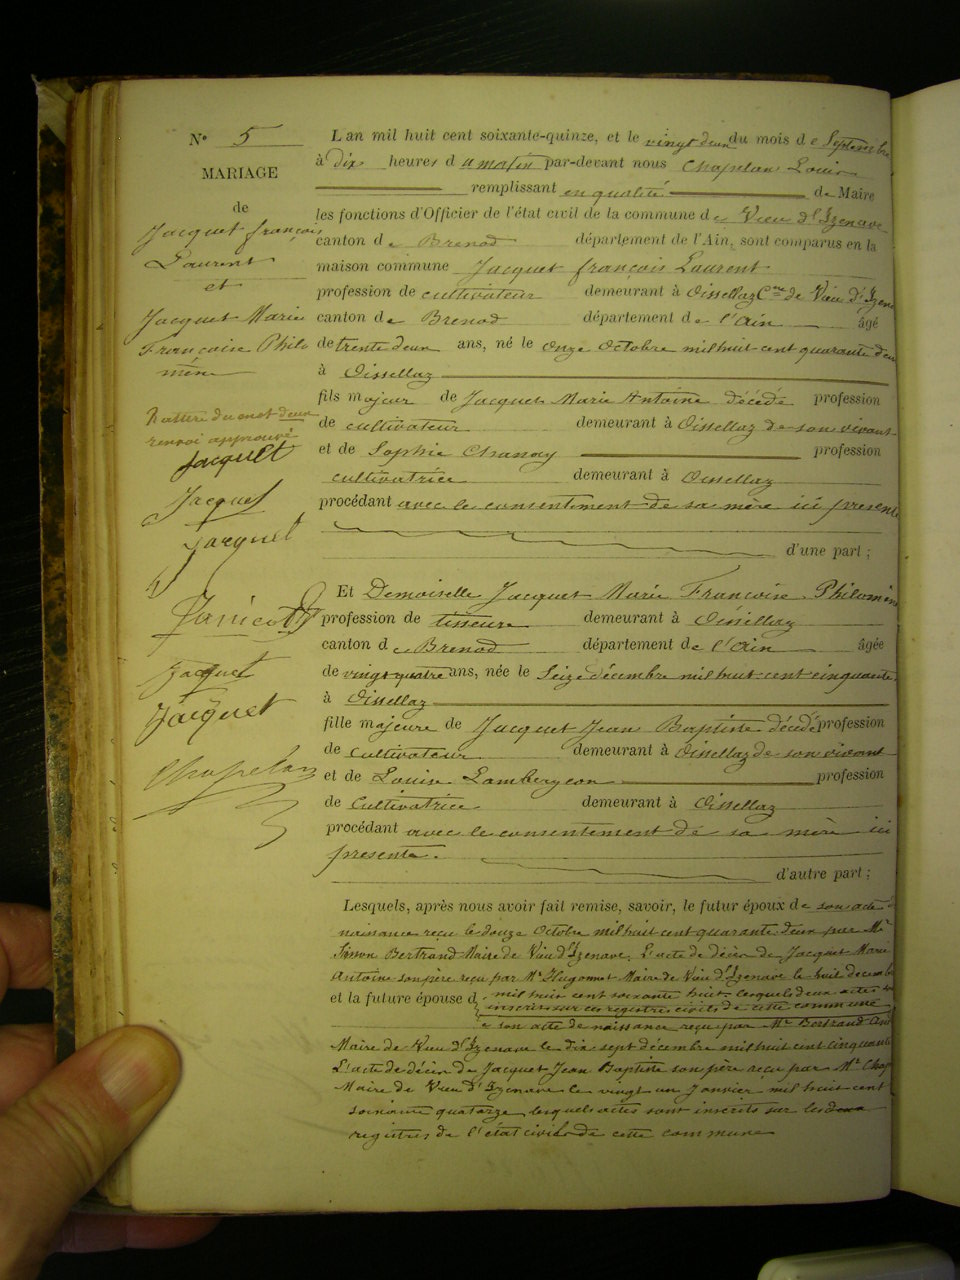 N° 5
MARIAGE
de
Jacquet françois
Laurent
et
Jacquet Marie
Françoise Philo
mène
Rature du mot deux
renvoi approuvé
Jacquet
Jacquet
Jacquet
Janicot
Jacquet
Jacquet
Chapelan
L'an mil huit cent soixante-quinze, et le vingt deux du mois de Septembre
à dix heures du matin par-devant nous Chapelan Louis
remplissant en qualité de Maire
les fonctions d'Officier de l'état civil de la commune de Vieu d'Izenave
canton de Brenod département de l'Ain, sont comparus en la
maison commune Jacquet françois Laurent
profession de cultivateur demeurant à Oissellaz Cne de Vieu d'Izena
canton de Brenod département de l'Ain âgé
de trente deux ans, né le onze Octobre mil huit cent quarante deux
à Oissellaz
fils majeur de Jacquet Marie Antoine décédé profession
de cultivateur demeurant à Oissellaz de son vivant
et de Sophie Chanay profession
cultivatrice demeurant à Oissellaz
procédant avec le consentement de sa mère ici presente
d'une part ;
Et Demoiselle Jacquet Marie Françoise Philomène
profession de tisseuse demeurant à Oisellaz
canton de Brenod département de l'Ain âgée
de vingt quatre ans, née le Seize décembre mil huit cent cinquante
à Oisellaz
fille majeure de Jacquet Jean Baptiste décédé profession
de cultivateur demeurant à Oisellaz de son vivant
et de Louise Lambergeon profession
de Cultivatrice demeurant à Oissellaz
procédant avec le consentement de sa mère ici
presente.
d'autre part ;
Lesquels, après nous avoir fait remise, savoir, le futur époux de son acte de
naissance reçu le douze Octobre mil huit cent quarante deux par Mr
Bertrand Maire de Vieu d'Izenave, L'acte de décès de Jacquet Marie
Antoine son père reçu par Mr Hugonnet Maire de Vieu d'Izenave le huit decembre
mil huit cent soixante huit lesquels deux actes
inscrits sur les registres civils de cette commune
et la future épouse d
e son acte de naissance reçu par Mr Bertrand
Maire de Vieu d'Izenave le dix sept décembre mil huit cent cinquante
L'acte de décès de Jacquet Jean Baptiste son père reçu par Mr Chap
Maire de Vieu d'Izenave le vingt un Janvier mil huit cent
soixante quatorze, lesquels actes sont inscrits sur les deux
registres de l'état civil de cette commune